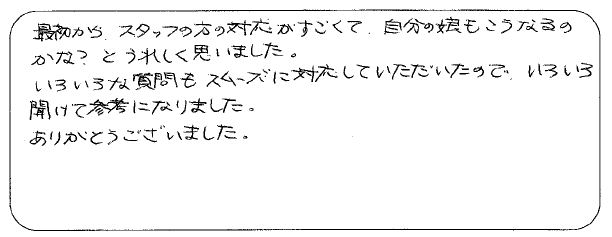 最初から、スタッフの方の対応がすごくて、自分の娘もこうなるの
かな？とうれしく思いました。
いろいろな質問もスムーズに対応していただいたので、いろいろ
聞けて参考になりました。
ありがとうございました。